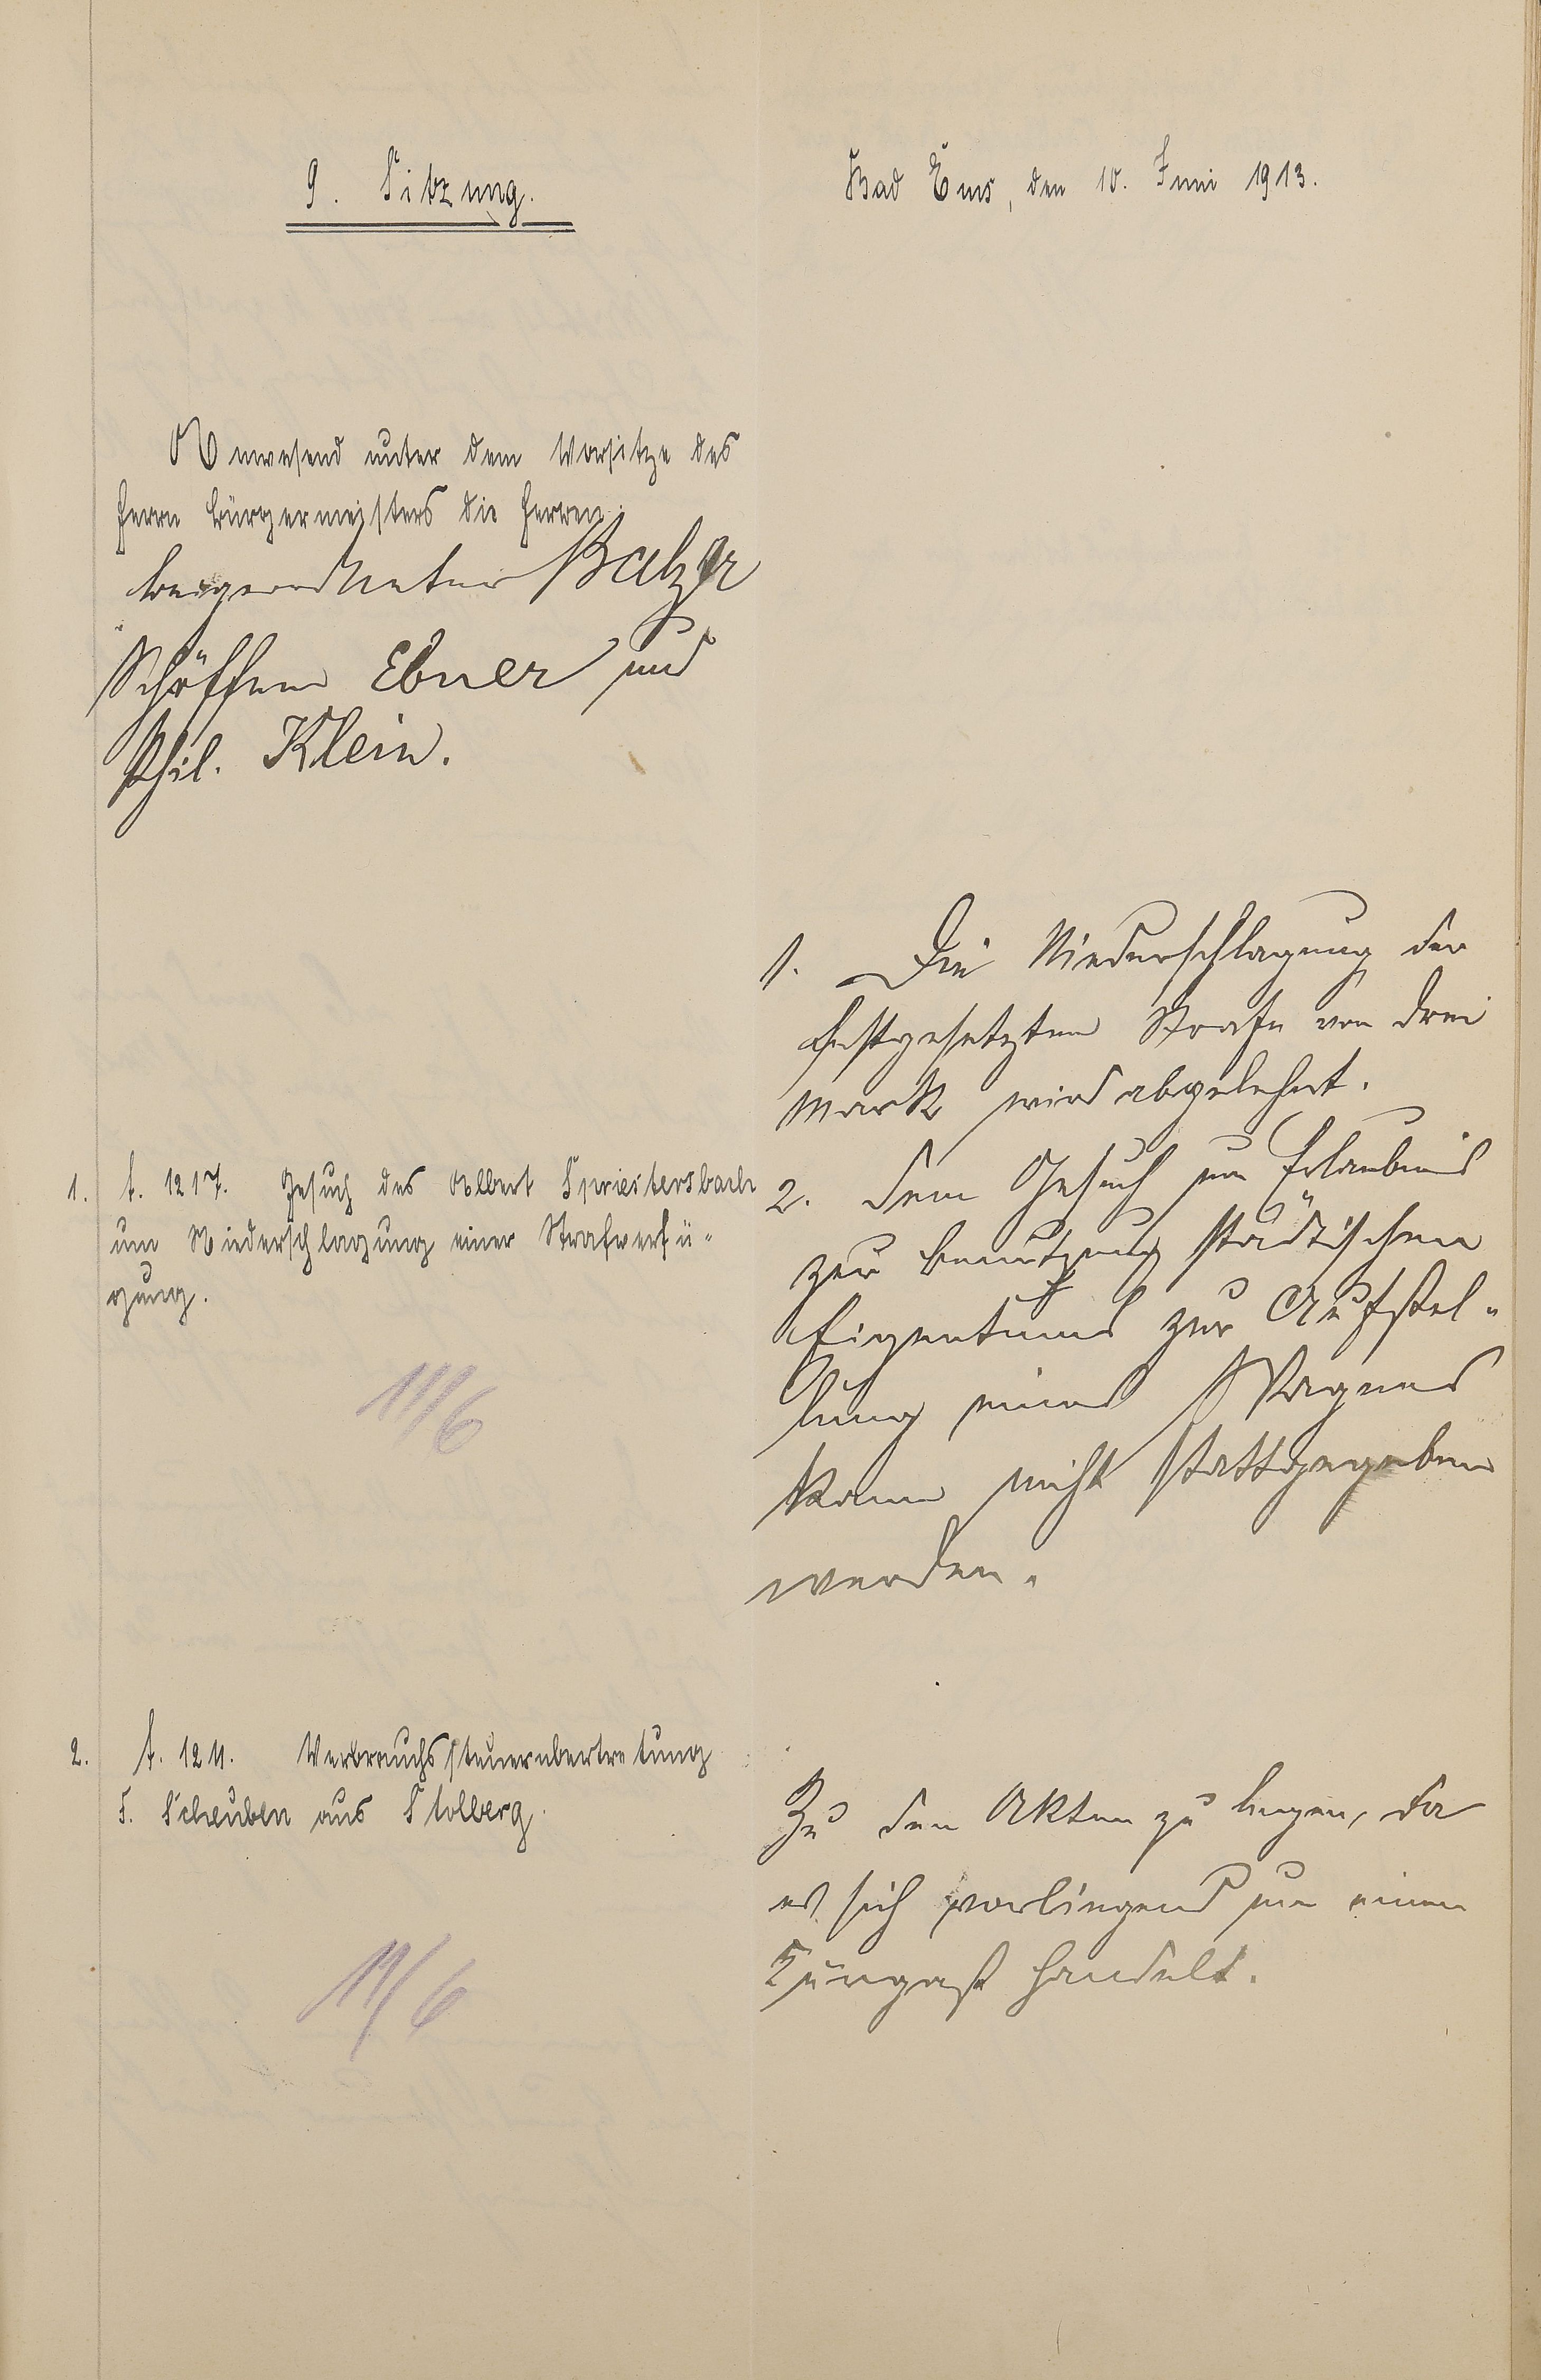 9. Sitzung.
Bad Ems, den 10. Juni 1913.
Anwesend unter dem Vorsitze des
Herrn Bürgermeisters die Herren:
Beigeordneter Balzer
Schöffen Ebner und
Phil. Klein.
1. Die Niederschlagung der
festgesetzten Strafe von drei
Mark wird abgelehnt.
2. Dem Gesuch um Erlaubnis
zur Benutzung städtischen
Eigentums zur Aufstel-
lung eines Wagens
kann nicht stattgegeben
werden.
1. t. 1217. Gesuch des Albert Spriestersbach
um Niederschlagung einer Strafverfü-
gung.
11/6
2. t. 1211. Verbrauchssteuerubertretung
F. Scheuben aus Stolberg.
Zu den Akten zu legen, da
es sich vorliegend um einen
Kurgast handelt.
11/6